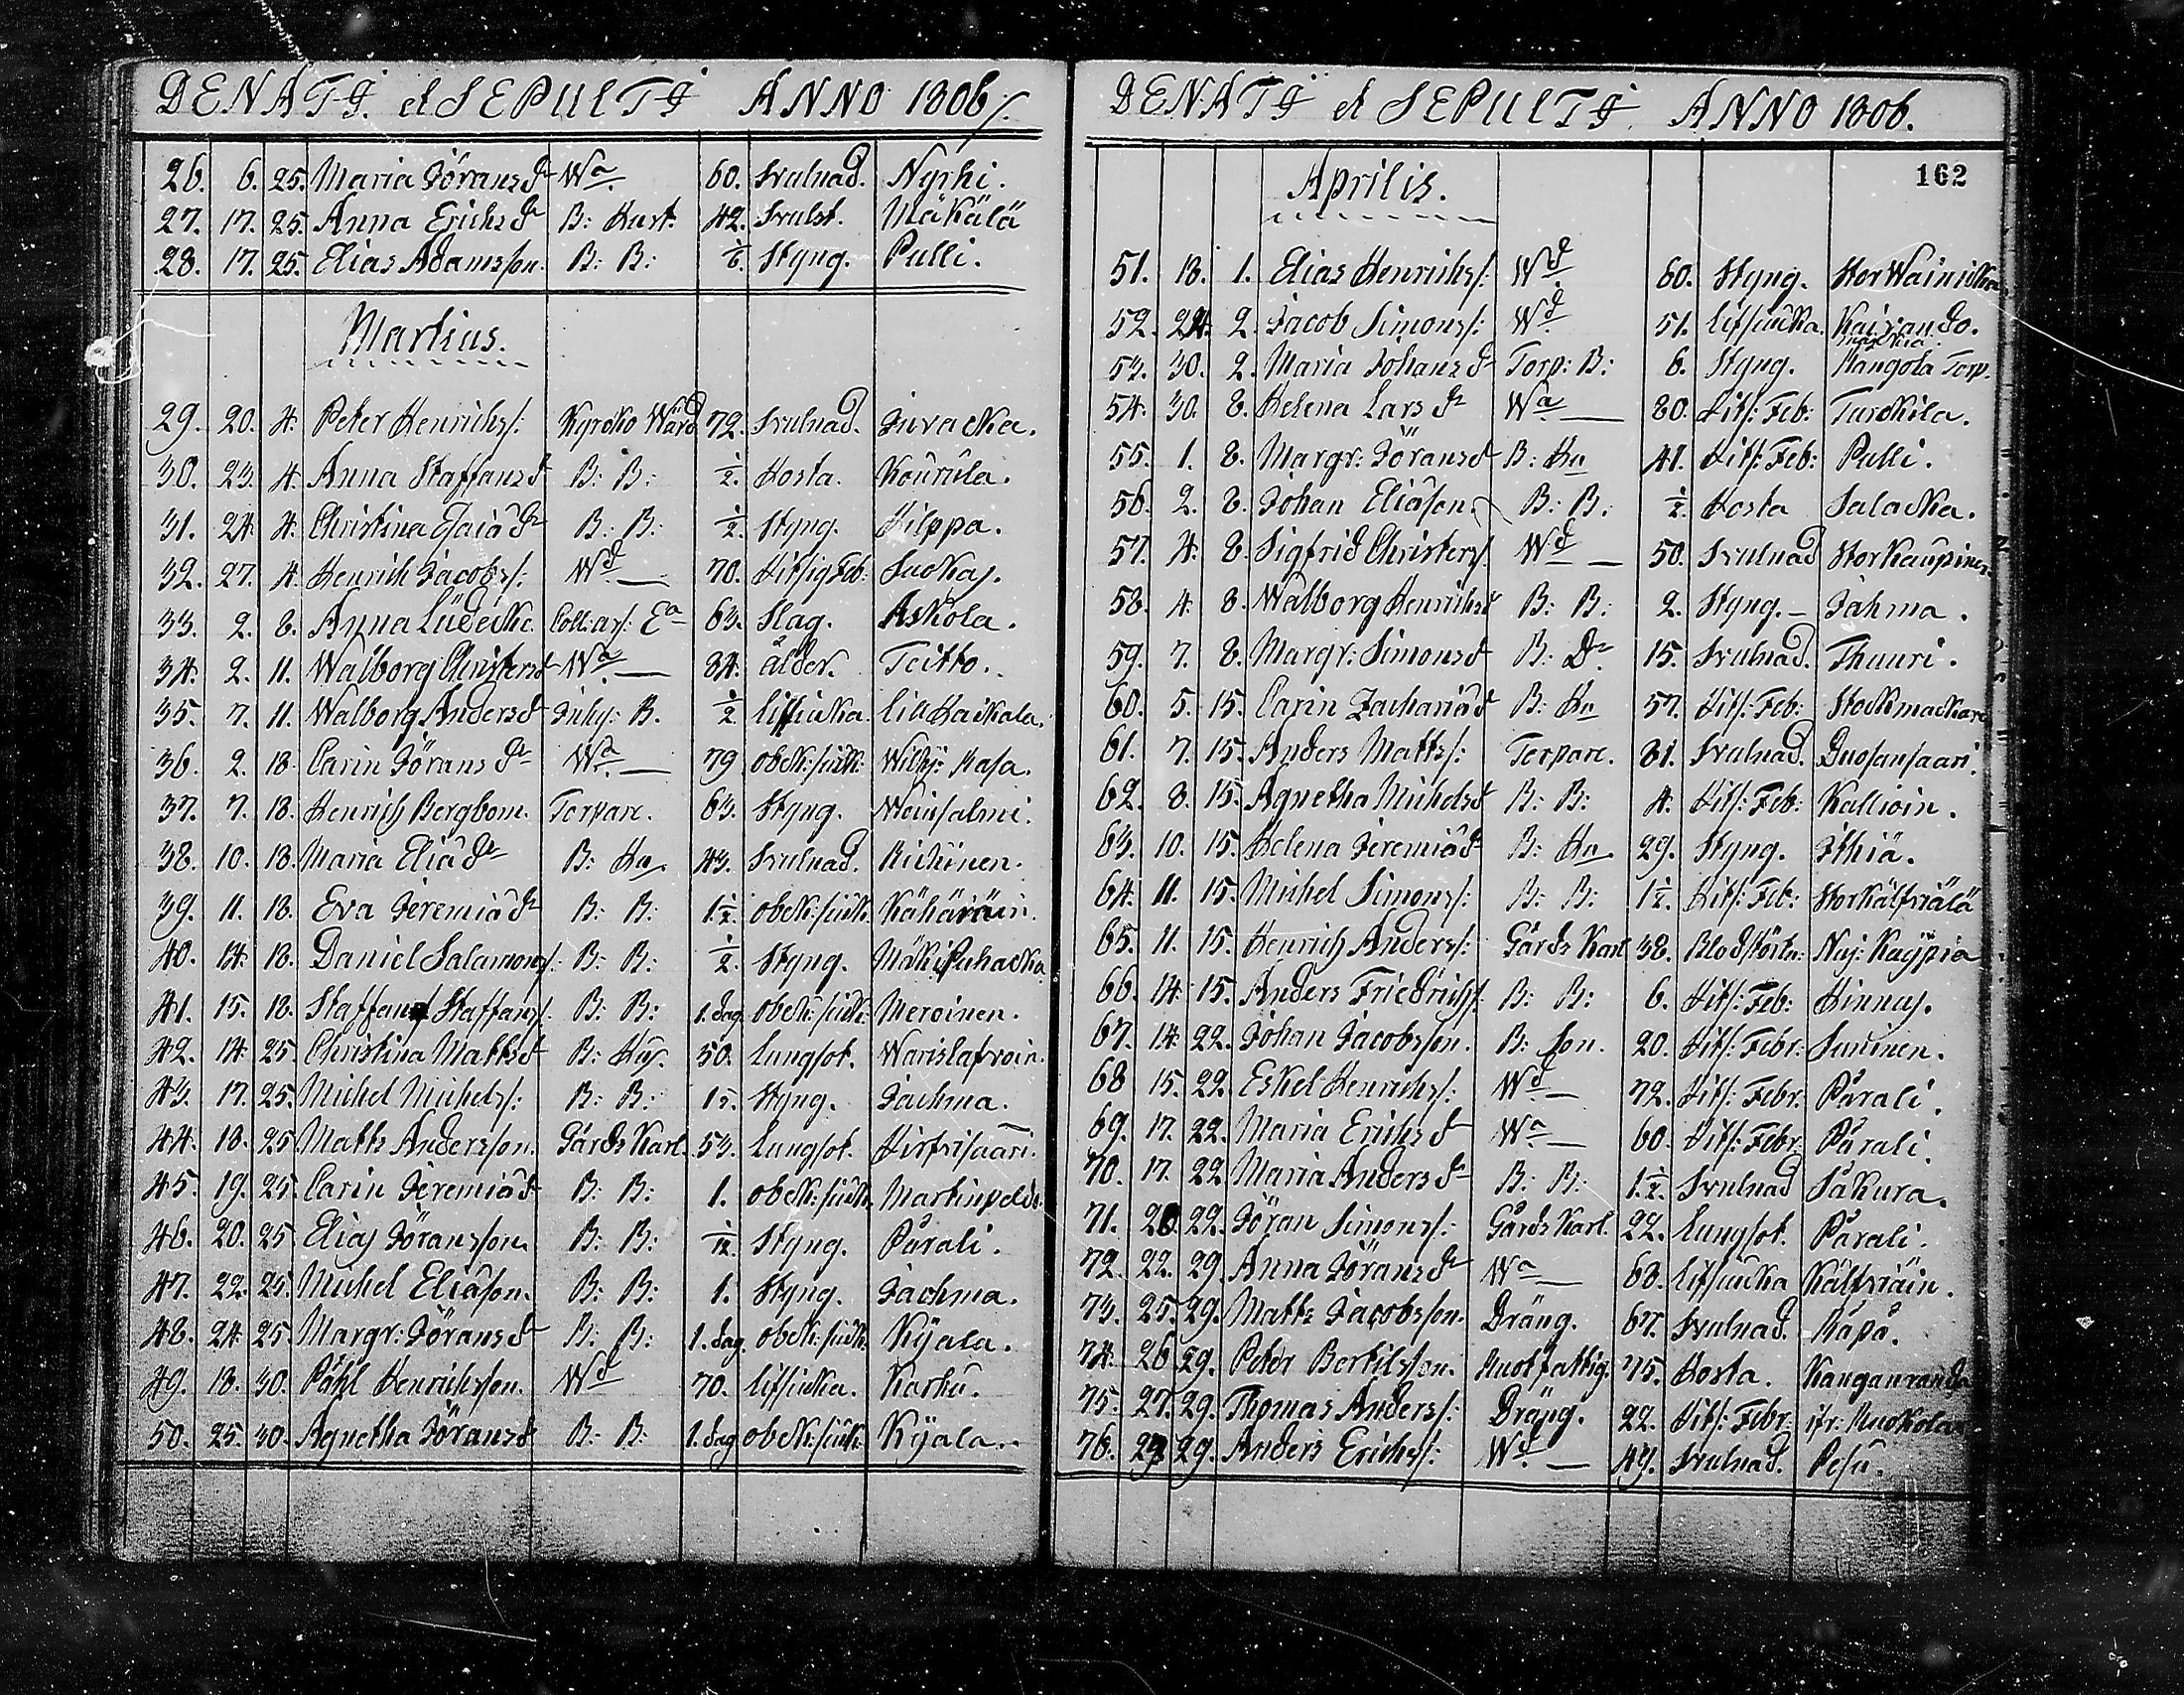 DENATI et SEPULTI ANNO 1806
26. 6. 25. Maria Jöransdr Wa. 60. Svulnad. Nyrhi.
27. 17. 25. Anna Erichsdr B: Hust. 42. Svulst. Mäkälä
28. 17. 25. Elias Adamsson. B: B: Styng. Pulli.
Martius.
29. 20. 4. Peter Henrichs: Kyrcko Wärd 72. Svulnad. Juvacka.
30. 23. 4. Anna Staffansdr B: B: ½. Hosta. Kourula.
31. 24. 4. Christina Esaiædr B: B: ½. Styng. Hilppa.
32. 27. 4. Henrich Jacobs: Wd. 70. Hitsig Feb: Suckas.
33. 2. 8. Anna Lüdecke. Coll: as: Ea 63. Slag. Askola.
34. 2. 11. Walborg Christersdr Wa. 84. ålder. Teitto.
35. 7. 11. Walborg Andersdr Inhys: B. ½ Lifsiucka. Lill Kaikala.
36. 2. 18. Carin Jöransdr Wa. 79 obek: siuk: Wilhj: Kasa.
37. 7. 18. Henrich Bergbom. Torpare. 63. Styng. Weinsalmi.
38. 10. 18. Maria Eliædr B: Hu. 43. Svulnad. Richinen.
39. 11. 18. Eva Jeremiædr B: B: 1½. obek: siuk. Kähäräin.
40. 14. 18. Daniel Salamons: B: B: ½. Styng. Mäki Puhacka
41. 15. 18. Staffan Staffans: B: B: 1. dag. obek: siuk: Meroinen.
42. 14. 25 Christina Mattsdr B: Hus. 50. Lungsot. Warislafvoin.
43. 17. 25. Michel Michels: B: B: Styng. Jachma.
44. 18. 25 Matts Andersson. Gårds Karl. 53. Lungsot. Hirfvisaari.
45. 19. 25 Carin Jeremiædr B: B: 1. obek: siuk. Martinpeldo.
46. 20. 25 Elias Jöransson. B: B: Styng. Pårali.
47. 22. 25. Michel Eliæson. B: B: 1. Styng. Jachma.
48. 24. 25. Margr: Jöransdr B: B: 1. dag. obek: siuk. Kyala.
49. 18. 30. Påhl Henrichsson. Wd 70. Lifsiucka. Karku.
50. 25. 30. Agnetha Jöransdr B: B: 1. dag obek: siuk: Kyala.
DENATI et SEPULTI ANNO 1806.
162
Aprilis.
51. 18. 1. Elias Henrichs: Wd 60. Styng. Stor Wainicka
52. 24. 2. Jacob Simons: Wd 51. Lifsiucka. Kairando.
53. 30. 2. Maria Johansdr Torp: B: 6. Styng. Kangola Torp.
54. 30. 8. Helena Larsdr Wa 80. Hits: Feb: Turckila.
55. 1. 8. Margr: Jöransdr B: Hu 41. Hits: Feb: Pulli.
56. 2. 8. Johan Eliæson. B: B: ½. Hosta Salacka.
57. 4. 8. Sigfrid Christers: Wd 50. Svulnad Stor Kaupinen
58. 4. 8. Walborg Henrichsdr B: B: 2. Styng. Jahma.
59. 7. 8. Margr: Simonsdr B: Dr. 15. Svulnad. Thuuri.
60. 5. 15. Carin Zachariædr B: Hu 57. Hits: Feb: Stockmackare
61. 7. 15. Anders Matts: Torpare. 81. Svulnad. Duosansaari.
62. 8. 15. Agnetha Michelsdr B: B: 4. Hits: Feb: Kallioin.
63. 10. 15. Helena Jeremiædr B: Hu. 29. Styng. Ithiä.
64. 11. 15. Michel Simons: B: B: 1½. Hits: Feb: Stor Kälfviälä
65. 11. 15. Henrich Anders: Gårds Karl 38. Blodstörtn: Kaypiä
66. 14. 15. Anders Friedrichs: B: B: 6. Hits: Feb: Hinnas.
67. 14. 22. Johan Jacobsson. B: Son. 20. Hits: Febr: Suninen.
68 15. 22. Eskel Henrichs: Wd 72. Hits: Febr: Pårali.
69. 17. 22. Maria Erichsdr Wa 60. Hits: Febr: Pårali.
70. 17. 22 Maria Andersdr B: B: 1½. Svulnad Såkura.
71. 20. 22. Jöran Simons: Gårds Karl. 22. Lungsot. Pårali.
72. 22. 29. Anna Jöransdr Wa 63. Lifsiucka Kälfviäin.
73. 25. 29. Matts Jacobsson. Dräng. 67. Svulnad. Kåpå.
74. 26 29. Peter Bertilsson. Ruotfattig. 75. Hosta. Kanganranda
75. 27. 29. Thomas Anders: Dräng. 22. Hits: Febr: ifr: Ruokolax
76. 29. Anders Erichs: Wd. 49. Svulnad. Pesu.